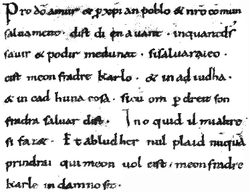 Pro dō amur & pxp̄i an poblo & nr̄o comun
saluament. dist di en auant. inquantd̄s
sauir & podir medunat. sisaluaraieo.
cist meon fradre karlo. & in adiudha.
& in cad huna cosa. sicū om p dreit son
fradra saluar dist. Ino quid il mialtre
si faz&. Et abludher nul plaid nūquā
prindrai qui meon uol cist. meon fradre
karle in damno sit.